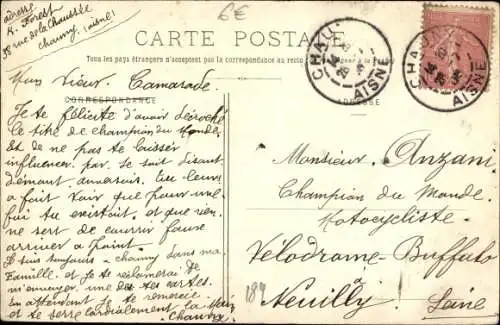 adresse
K. Forest
38 rue de la Chaussée
Chauny (Aisne)
6€
CARTE POSTALE
Tous les pays étrangers n'acceptent pas la correspondance au recto
CHAU
AISNE
CHAUNY
AISNE
Mon Vieux Camarade.
CORRESPONDANCE
ADRESSE
Je te félicite d'avoir décroché
le titre de champion du Monde
et de ne pas te laisser
influencer par se soit disant
Tu leur
a fait voir que pour une
fois tu existait. et que rien
ne sert de courir faut
arriver a point.
Je suis toujours a Chauny dans ma
Famille et je te réclamerai de
m'envoyer une des tes cartes.
En attendant je te remercie
et te serre cordialement la main
Chauny
Monsieur Anzani
Champion du Monde
Motocycliste
Vélodrome-Buffalo
à
Neuilly Seine
184